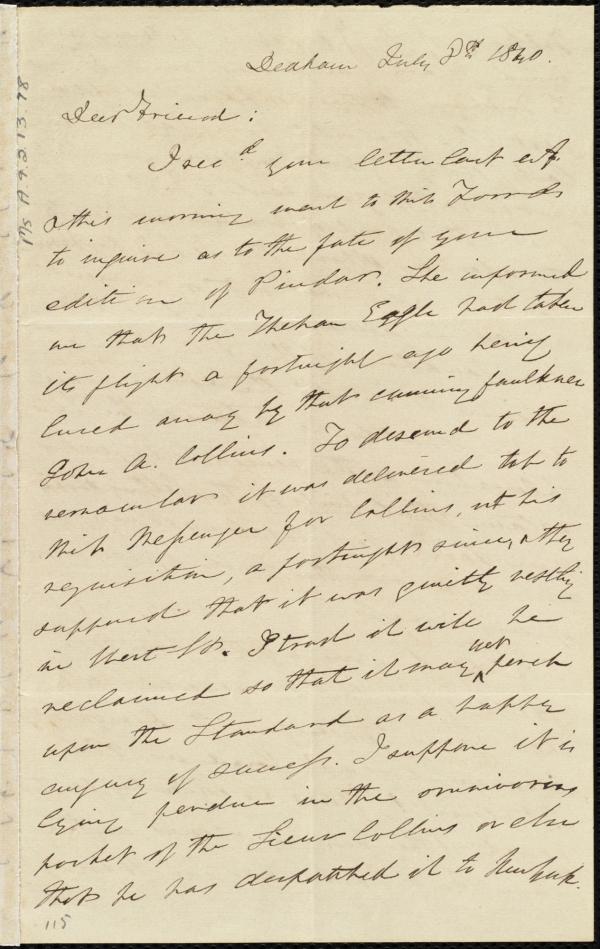 Dedham July 8th 1840.
Dear Friend:
I recd your letter last evg.
& this morning went to Miss
to inquire as to the fate of your
edition of Pindar. She informed
me that the Theban Eagle had taken
its flight a fortnight ago being
lured away by that cunning faulkner
John A. Collins. To descend to the
vernacular it was delivered to
Miss Messenger for Collins, at his
requisition, a fortnight since, & they
supposed that it was quietly nestling
in West St. I trust it will be
reclaimed so that it may yet perch
upon the Standard as a happy
augury of success. I suppose it is
lying perdue in the omnivorous
pocket of the Sieur Collins or else
that he has despatched it to New York.
115
Ms A.9.2.13.78